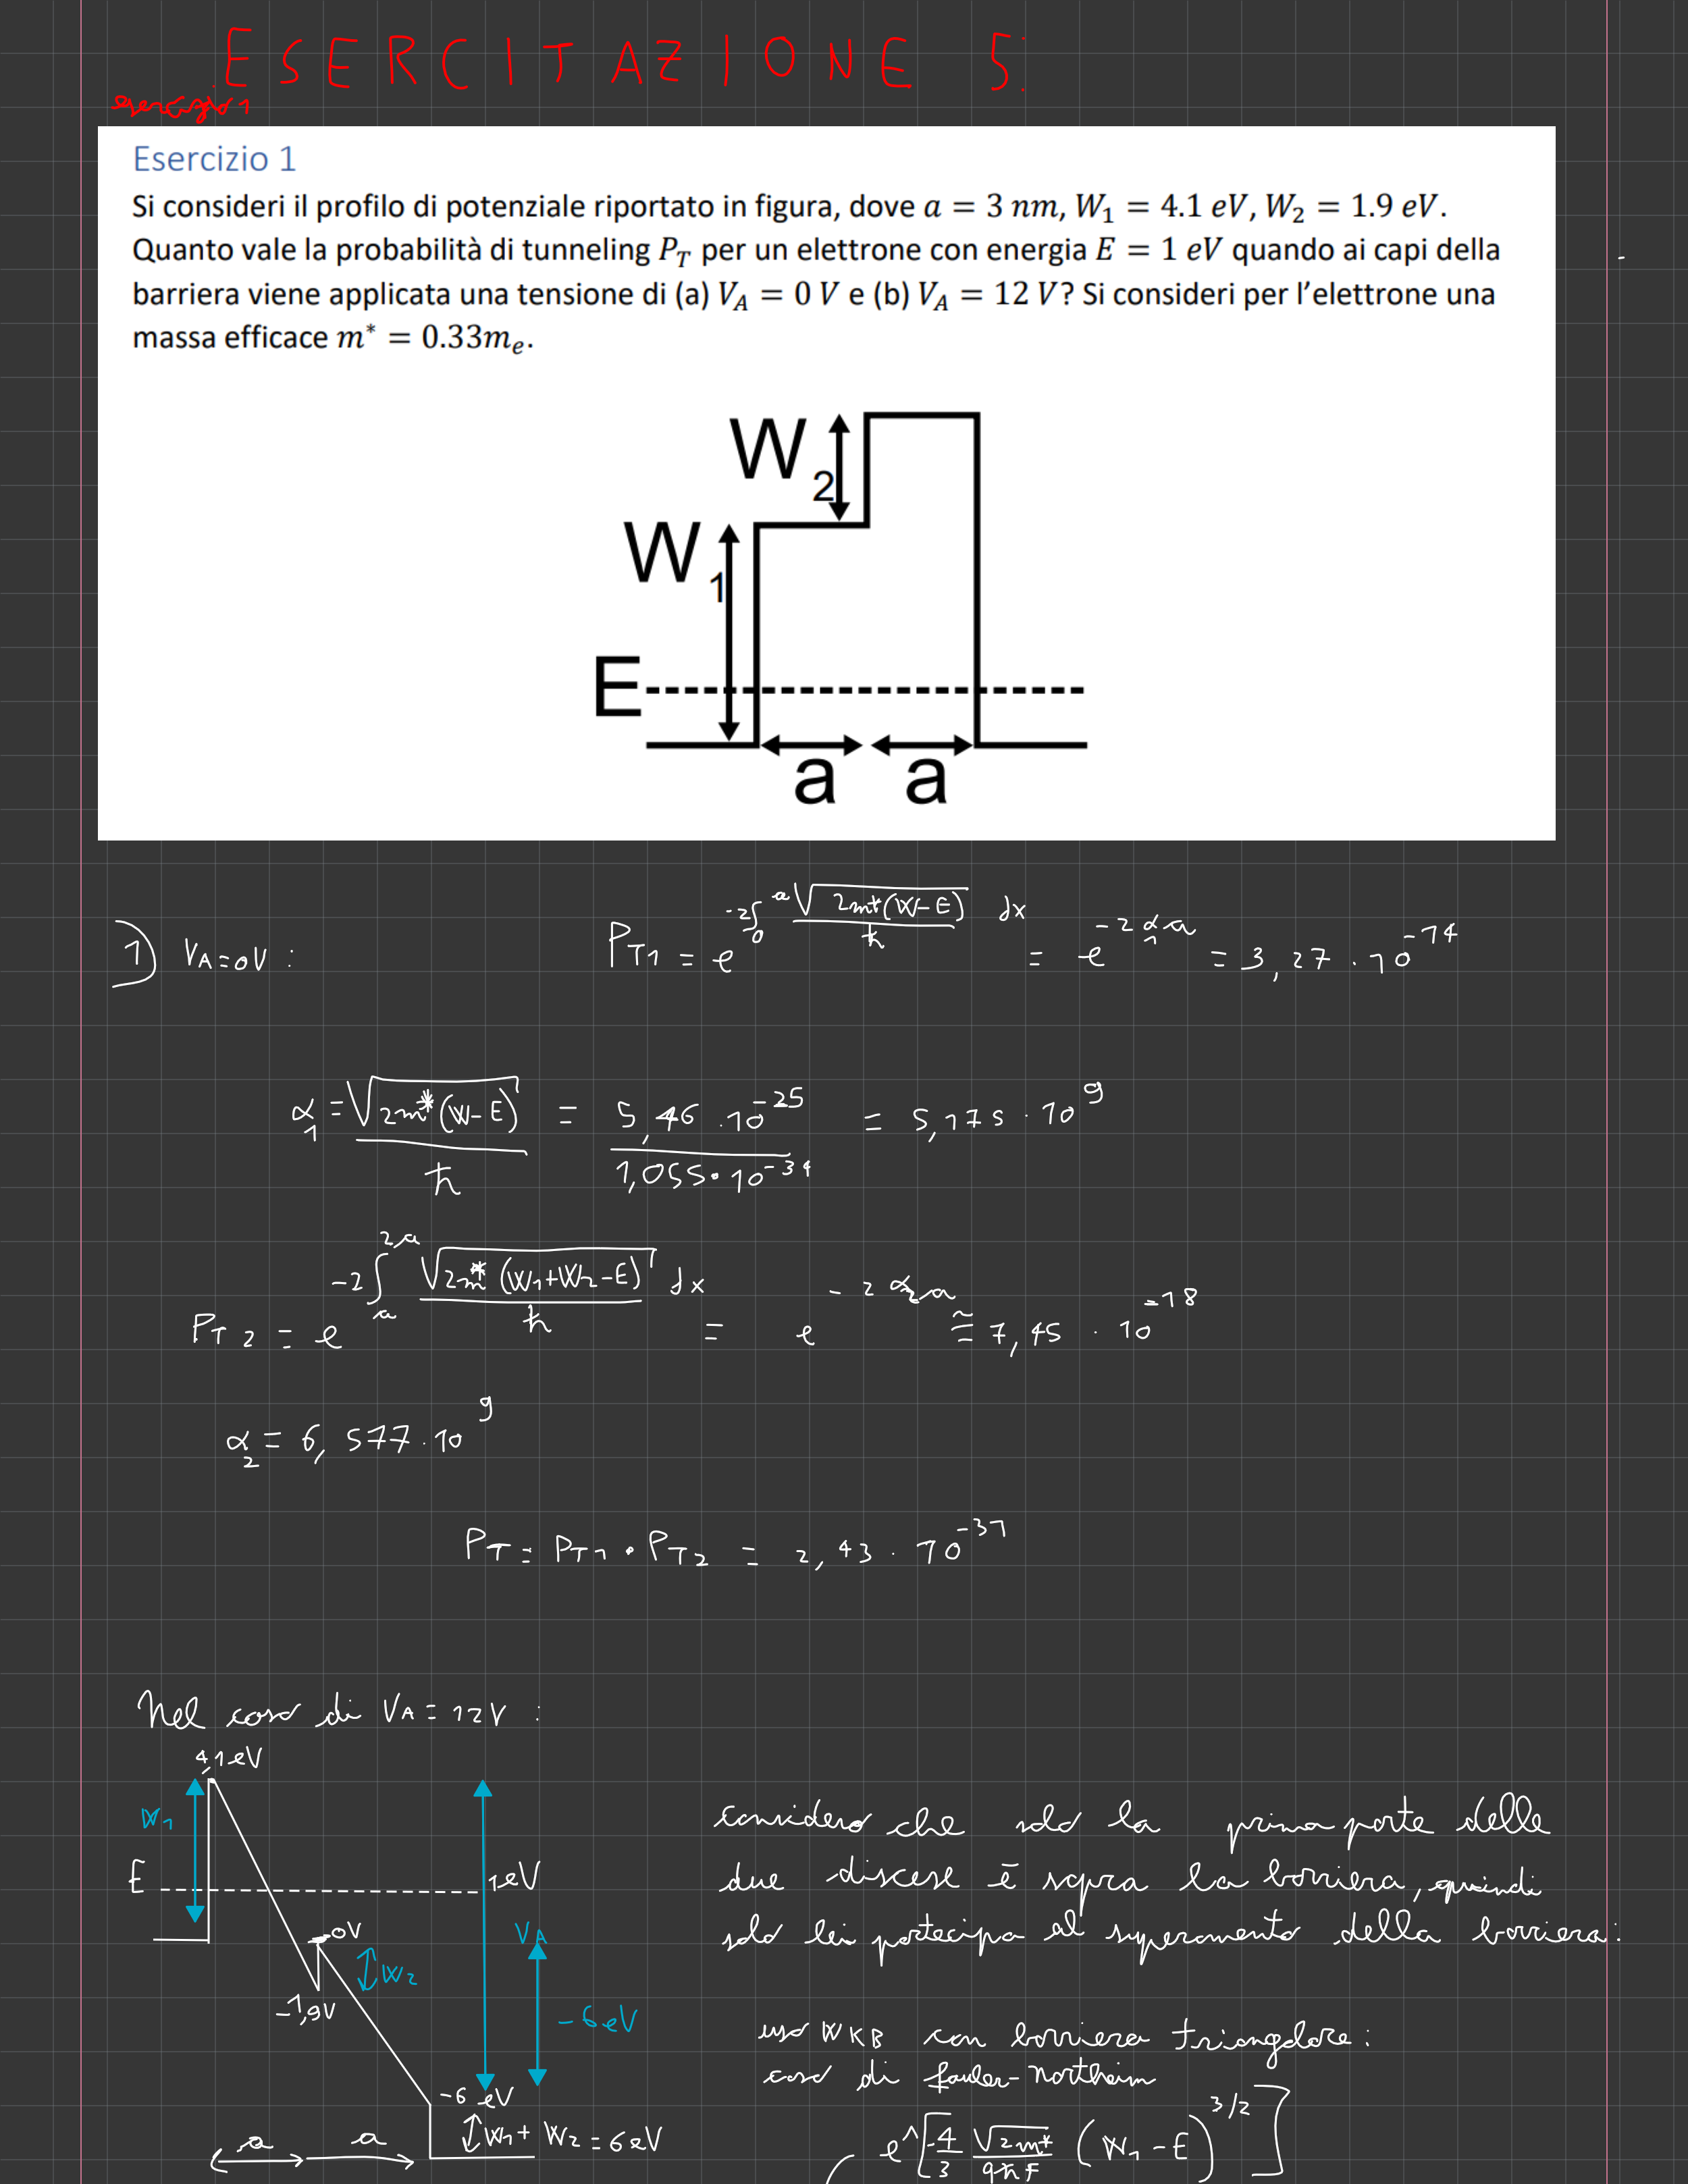 ESERCITAZIONE 5:
esercizio 1
Esercizio 1
Si consideri il profilo di potenziale riportato in figura, dove a = 3 nm, W₁ = 4.1 eV, W₂ = 1.9 eV.
Quanto vale la probabilità di tunneling P_T per un elettrone con energia E = 1 eV quando ai capi della
barriera viene applicata una tensione di (a) V_A = 0 V e (b) V_A = 12 V? Si consideri per l'elettrone una
massa efficace m* = 0.33mₑ.
W₂
W₁
E
a a
1) V_A=0V : P_T1 = e^(-2∫₀^a √(2m*(W-E))/ħ dx) = e^(-2α₁a) = 3,27 · 10^-14
α₁ = √(2m*(W-E))/ħ = 5,46 · 10^-25 / 1,055 · 10^-34 = 5,175 · 10^9
P_T2 = e^(-2∫_a^2a √(2m*(W₁+W₂-E))/ħ dx) = e^(-2α₂a) ≅ 7,45 · 10^-18
α₂ = 6,577 · 10^9
P_T = P_T1 · P_T2 = 2,43 · 10^-31
Nel caso di V_A = 12V :
4,1eV
W₁
E
1eV
0V
V_A
W₂
-1,9V
-6eV
-6 eV
W₁ + W₂ = 6eV
a a
considero che solo la prima parte delle
due discese è sopra la barriera, quindi
solo lei partecipa al superamento della barriera:
uso WKB con barriera triangolare:
caso di fowler-northeim
e^[-4/3 √(2m*)/(qħF) (W₁-E)^(3/2)]